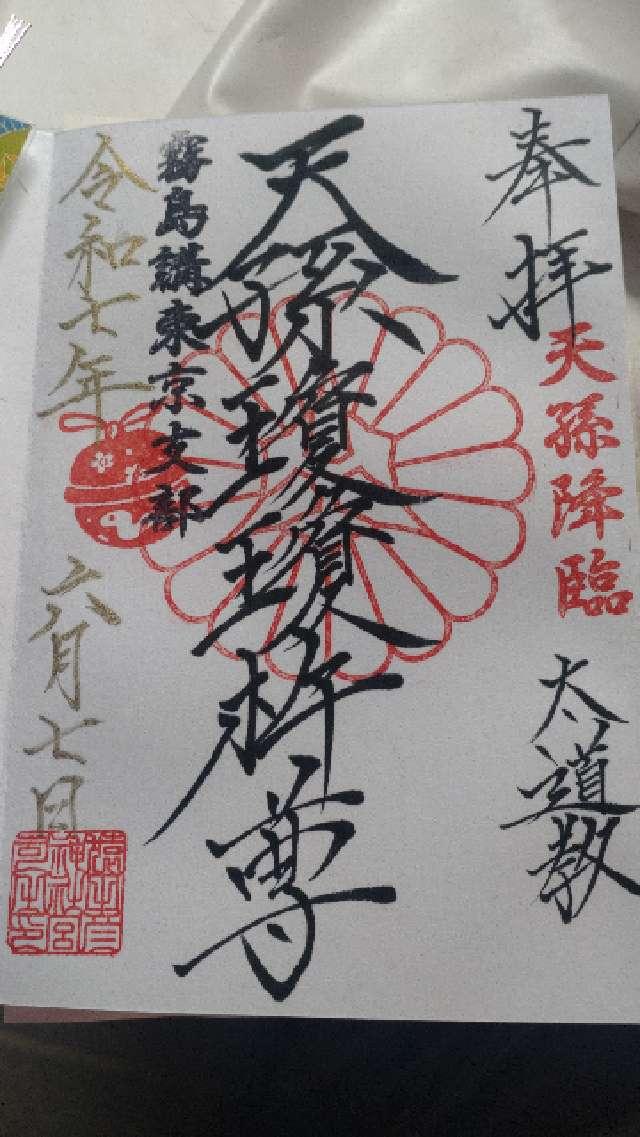 奉拝
天孫降臨
太道教
天孫瓊瓊杵尊
霧島講東京支部
令和七年 六月七日